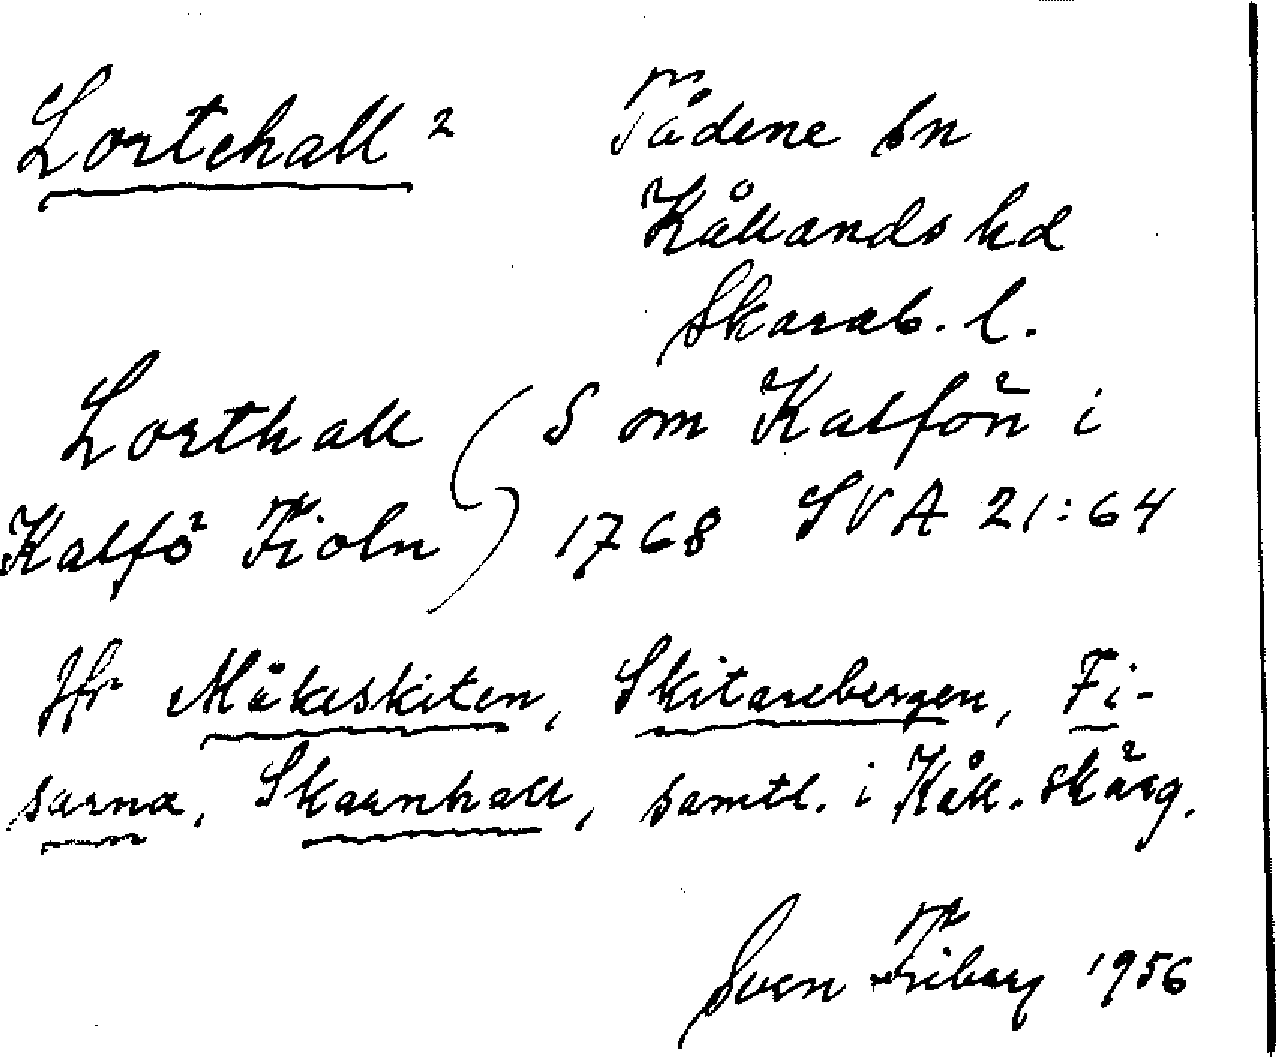 Lortehall 2 Tådene sn
Kållands hd
Skarab. l.
Lorthall (S om Kalfön i
Kalfö Fioln) 1768 SVA 21:64
Jfr Måkeskiten, Skitarebergen, Fi-
sarna, Skarnhall, samtl. i Kåll. skärg.
Sven Friberg 1956